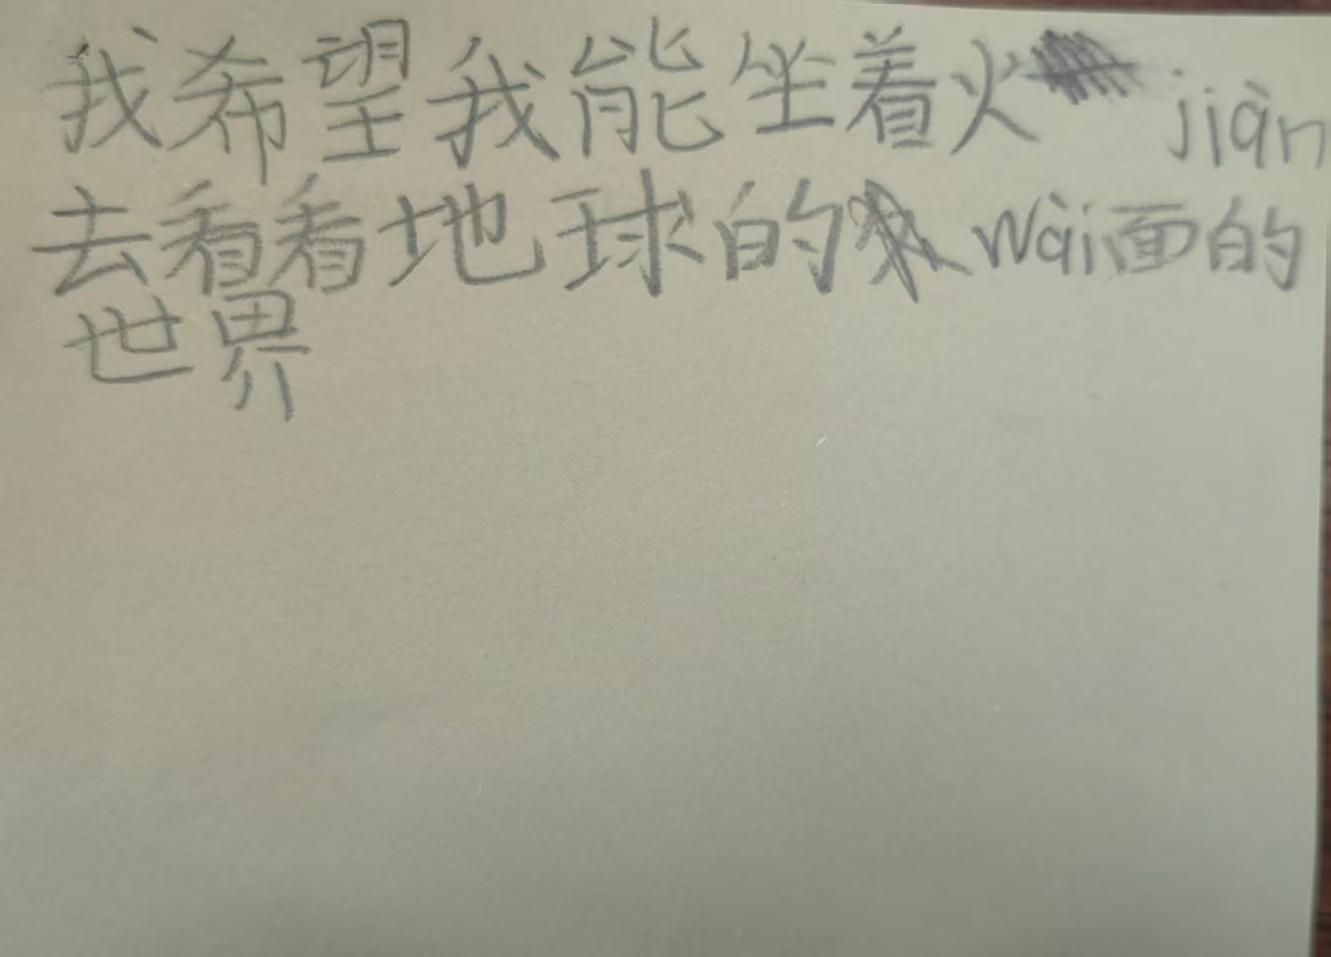 我希望我能坐着火 jiàn
去看看地球的 wài面的
世界